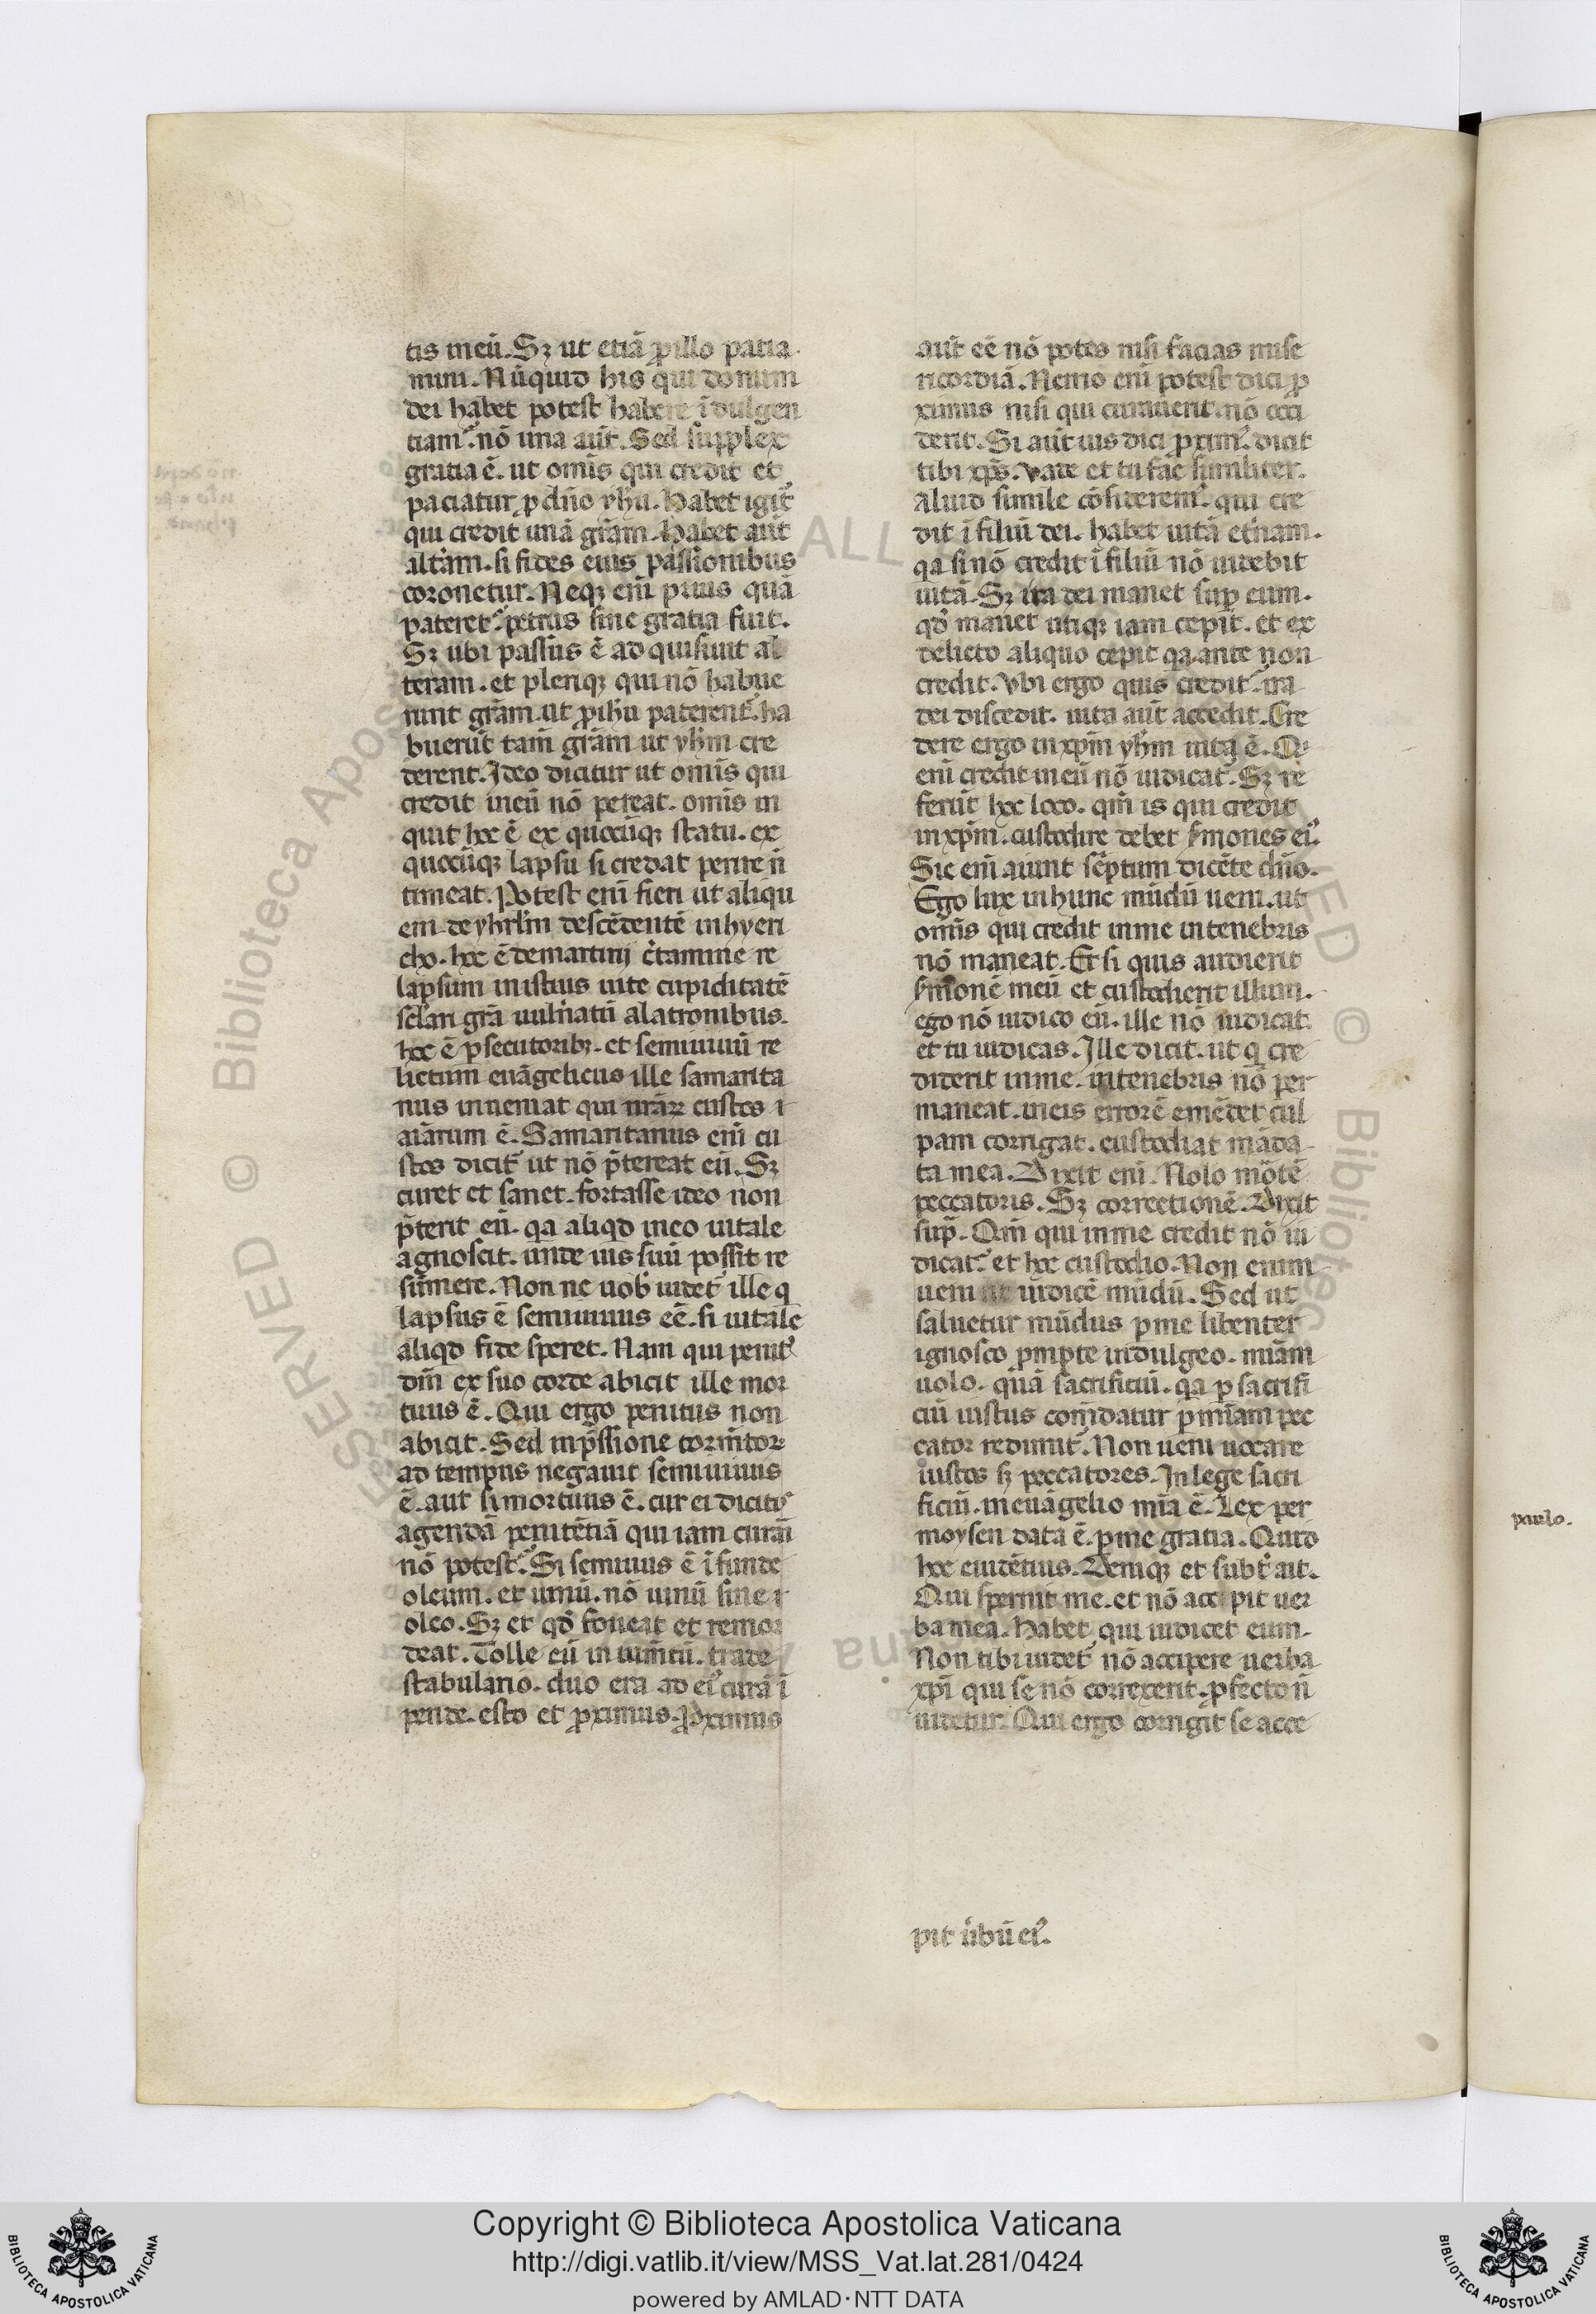 tis meū. Sꝫ ut etiā ꝓ illo patia
mini. Nūquid his qui donum
dei habet potest habere īdulgen
tiam. nō una aūt. Sed supplex
gratia ē. ut omīs qui credit et
paciatur ꝓ dn̄o yhu. Habet igit᷑
qui credit unā gr̄am. Habet aūt
altam. si fides eius passionibus
coronetur. Neqꝫ enī prius quā
pateret᷑. petrus sine gratia fuit.
Sꝫ ubi passus ē ad quisiuit al
teram. et pleriqꝫ qui nō habue
runt gr̄am. ut ꝓ ihu paterent᷑. ha
buerūt tam̄ gr̄am ut yhm cre
derent. Ideo dicitur ut omīs qui
credit in eū nō pereat. omīs in
quit hoc ē ex quocūqꝫ statu. ex
quocūqꝫ lapsu si credat perire n̄
timeat. Potest enī fieri ut aliqu
em de yhrlm descēdentē in hyeri
cho. hoc ē de martirij ctamine re
lapsum in istius uite cupiditatē
sclari gr̄a uulnatū a latronibus.
hoc ē ꝑsecutoribꝫ. et semiuiuū re
lictum euāgelicus ille samarita
nus inueniat qui nr̄aꝝ custos
aīarum ē. Samaritanus enī cu
stos dicit᷑ ut nō p̄tereat eū. Sꝫ
curet et sanet. fortasse ideo non
p̄terit eū. qa aliqd in eo uitale
agnoscit. unde uis suū possit re
sumere. Non ne uob uidet᷑ ille q
lapsus ē semiuiuus eē. si uitale
aliqd fide speret. Nam qui penit᷒
dm̄ ex suo corde abicit ille mor
tuus ē. Qui ergo penitus non
abicit. Sed in p̄ssione tormtoꝝ
ad tempus negauit semiuiuus
ē. aut si mortuus ē. cur ei dicit᷒
agendā penitētiā qui iam curari
nō potest. Si semiuiuus ē īfunde
oleum. et uinū. nō uinū sine
oleo. Sꝫ et qd̄ foueat et remor
deat. Tolle eū in iumtū. trade
stabulario. duo era ad ei᷒ curā ī
pende. esto et ꝓximus. Ꝓximus
aūt eē nō potes nisi facias mise
ricordiā. Nemo enī potest dici ꝓ
ximus nisi qui curauerit. nō occi
derit. Si aūt uis dici ꝓxim᷒. dicit
tibi xp̄s. Vade et tu fac similiter.
Aliud simile cōsiderem᷒. qui cre
dit ī filiū dei. habet uitā etnam.
qa si nō credit ī filiū nō uidebit
uitā. Sꝫ ira dei manet sup eum.
qd̄ manet utiqꝫ iam cepit. et ex
delicto aliquo cepit qa ante non
credit. Vbi ergo quis credit. ira
dei discedit. uita aūt accedit. Cre
dere ergo in xpm yhm uita ē. Q
enī credit in eū nō iudicat᷑. Sꝫ re
ferūt hoc loco. qm̄ is qui credit
in xpm. custodire debet smones ei᷒.
Sic enī aiunt scptum dicēte dn̄o.
Ego lux in hunc mūdū ueni. ut
omīs qui credit in me in tenebris
nō maneat. Et si quis audierit
smonē meū et custodierit illum.
ego nō iudico eū. ille nō iudicat.
et tu iudicas. Ille dicit. ut q cre
diderit in me. in tenebris nō per
maneat. in eis errorē emēdet cul
pam corrigat. custodiat māda
ta mea. Dixit enī. Nolo mōtē
peccatoris. Sꝫ correctionē. Dixit
sup̄. Qm̄ qui in me credit nō iu
dicat᷑. et hoc custodio. Non enim
ueni ut iudicē mūdū. Sed ut
saluetur mūdus ꝑ me libenter
ignosco ꝓmpte indulgeo. mīam
uolo. quā sacrificiū. qa ꝑ sacrifi
ciū iustus comdatur ꝑ mīam pec
cator redimit᷑. Non ueni uocare
iustos sꝫ peccatores. In lege sacri
ficiū. in euāgelio mīa ē. Lex per
moysen data ē. ꝑ me gratia. Quid
hoc euidētius. Deniqꝫ et subt᷑ ait.
Qui spernit me. et nō accipit uer
ba mea. Habet qui iudicet eum.
Non tibi uidet᷑ nō accipere uerba
xpi qui se nō correxerit. ꝓfecto n̄
uidetur. Qui ergo corrigit se acce
pit ūbū ei᷒.
paulo.
Copyright © Biblioteca Apostolica Vaticana
http://digi.vatlib.it/view/MSS_Vat.lat.281/0424
powered by AMLAD·NTT DATA